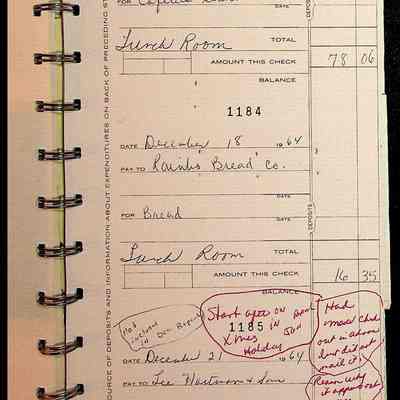 FOR Cafeteria
DATE
Lunch Room TOTAL
AMOUNT THIS CHECK 78 06
BALANCE
1184
DATE December 18 1964
PAY TO Rainbo Bread Co.
DATE
FOR Bread
DATE
DEPOSITS
Lunch Room TOTAL
AMOUNT THIS CHECK 16 35
BALANCE
Not included in Dec Report
Start after on
Xmas in
1185
Holiday
Had
made Check
out in above
but did not
mail it.
Reason why
it appears
DATE December 21 1964
PAY TO Lee Hartman & Sons
SOURCE OF DEPOSITS AND INFORMATION ABOUT EXPENDITURES ON BACK OF PRECEDING